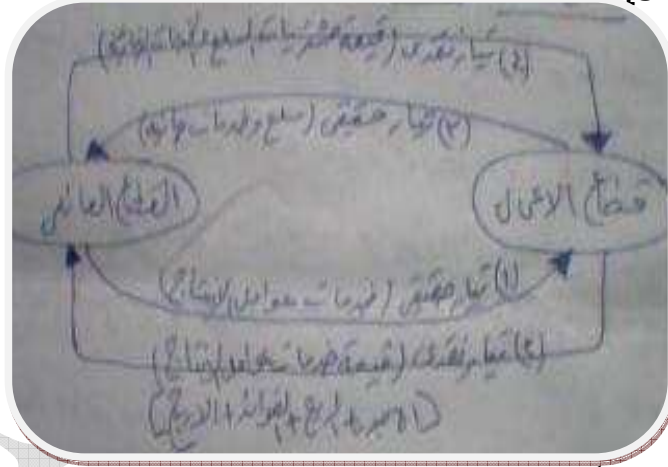 (٤) تيار نقدى (قيمة مشتريات السلع والخدمات النهائية)
(٣) تيار حقيقى (سلع وخدمات نهائية)
قطاع الاعمال
القطاع العائلى
(١) تيار حقيقى (خدمات عوامل الانتاج)
(٢) تيار نقدى (قيمة خدمات عوامل الانتاج)
(الاجور + الريع + الفوائد + الارباح)